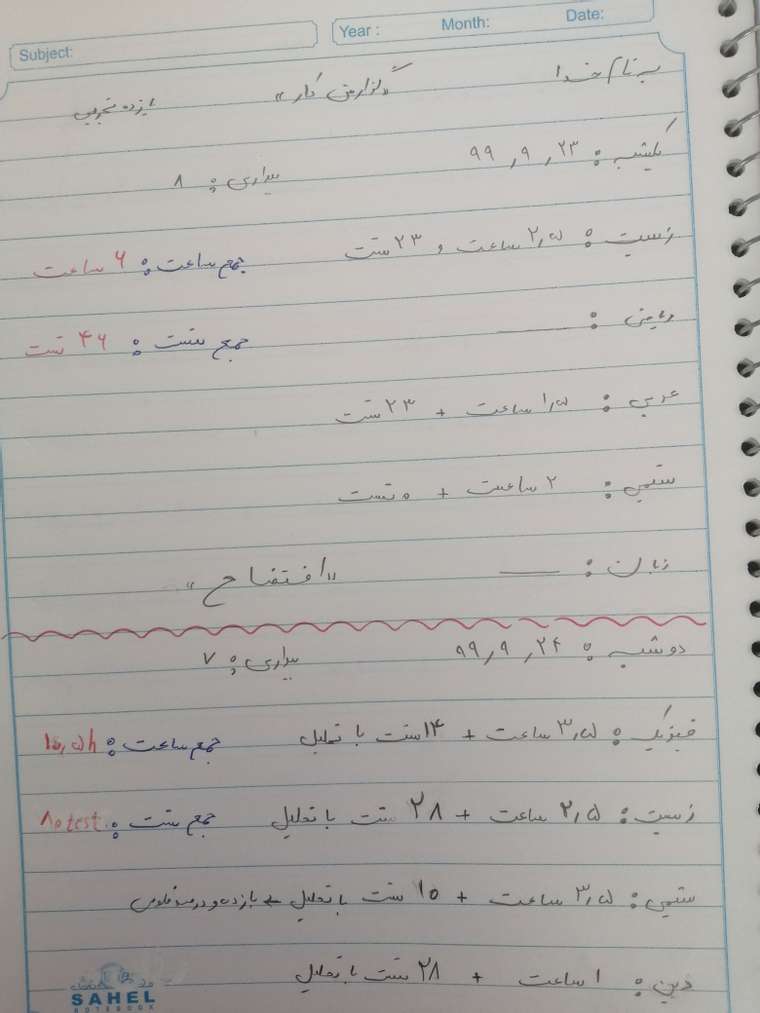 Subject:
Year :
Month:
Date:
به نام خدا «گزارش کار»
یکشنبه : ۹۹٫۹٫۲۳ بیداری : ۸
زیست : ۲٫۵ ساعت و ۲۳ تست
جمع ساعت : ۶ ساعت
ریاضی : ــــ
جمع تست : ۴۶ تست
عربی : ۱٫۵ ساعت + ۲۳ تست
شیمی : ۲ ساعت + ۰ تست
زبان : ــــ «افتضاح»
دوشنبه : ۹۹٫۹٫۲۴ بیداری : ۷
فیزیک : ۳٫۵ ساعت + ۱۴ تست با تحلیل
جمع ساعت :
زیست : ۲٫۵ ساعت + ۲۸ تست با تحلیل
جمع تست : ۸۰ test
شیمی : ۳٫۵ ساعت + ۱۵ تست با تحلیل
دینی : ۱ ساعت + ۲۸ تست با تحلیل
SAHEL
NOTEBOOK